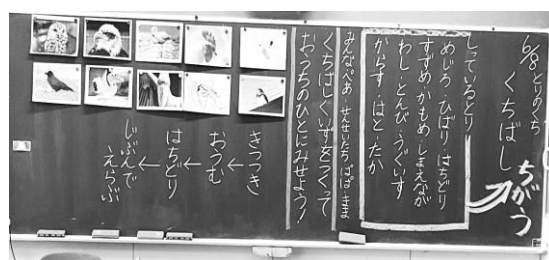 6/8 とりのくち
くちばし
ちがう
しっているとり
めじろ・ひばり・はちどり
すずめ・かもめ・しまえなが
わし・とんび・うぐいす
からす・はと・たか
みんなぺあ・せんせいたち ぱぱ・まま
くちばしくいずをつくって
おうちのひとにみせよう!
きつつき
↓
おうむ
↓
はちどり
↓
じぶんで
えらぶ